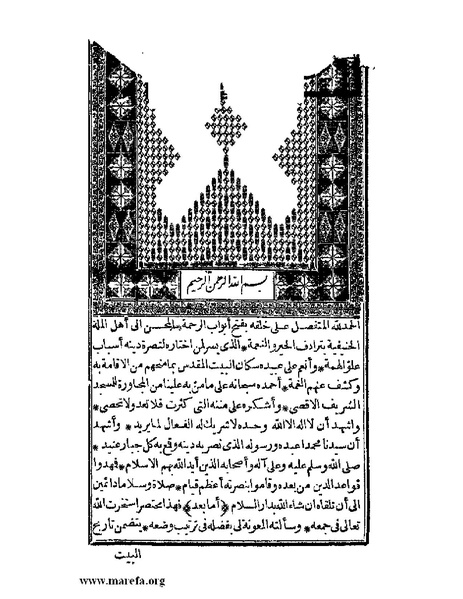 بسم الله الرحمن الرحيم
الحمد لله المتفضل على خلقه بفتح أبواب الرحمة * المحسن الى أهل الملة
الحنيفية بترادف الخير والنعمة * الذى يسر لمن اختاره لنصرة دينه أسباب
علو الهمة * وأنعم على عبيده سكان البيت المقدس بما منحهم من الاقامة به
وكشف عنهم الغمة * أحمده سبحانه على ما من به علينا من المجاورة للمسجد
الشريف الاقصى * وأشكره على مننه التى كثرت فلا تعد ولا تحصى *
واشهد أن لا اله الا الله وحده لا شريك له الفعال لما يريد * وأشهد
أن سيدنا محمدا عبده ورسوله الذى نصر به دينه وقمع به كل جبار عنيد *
صلى الله وسلم عليه وعلى آله وأصحابه الذين أيد الله بهم الاسلام * فمهدوا
قواعد الدين من بعده وقاموا بنصرته أعظم قيام * صلاة وسلاما دائمين
الى أن نلقاه ان شاء الله بدار السلام ﴿أما بعد﴾ فهذا مختصر استخرت الله
تعالى فى جمعه * وسألته المعونة لى بفضله فى ترتيب وضعه * يتضمن تاريخ
البيت
www.marefa.org